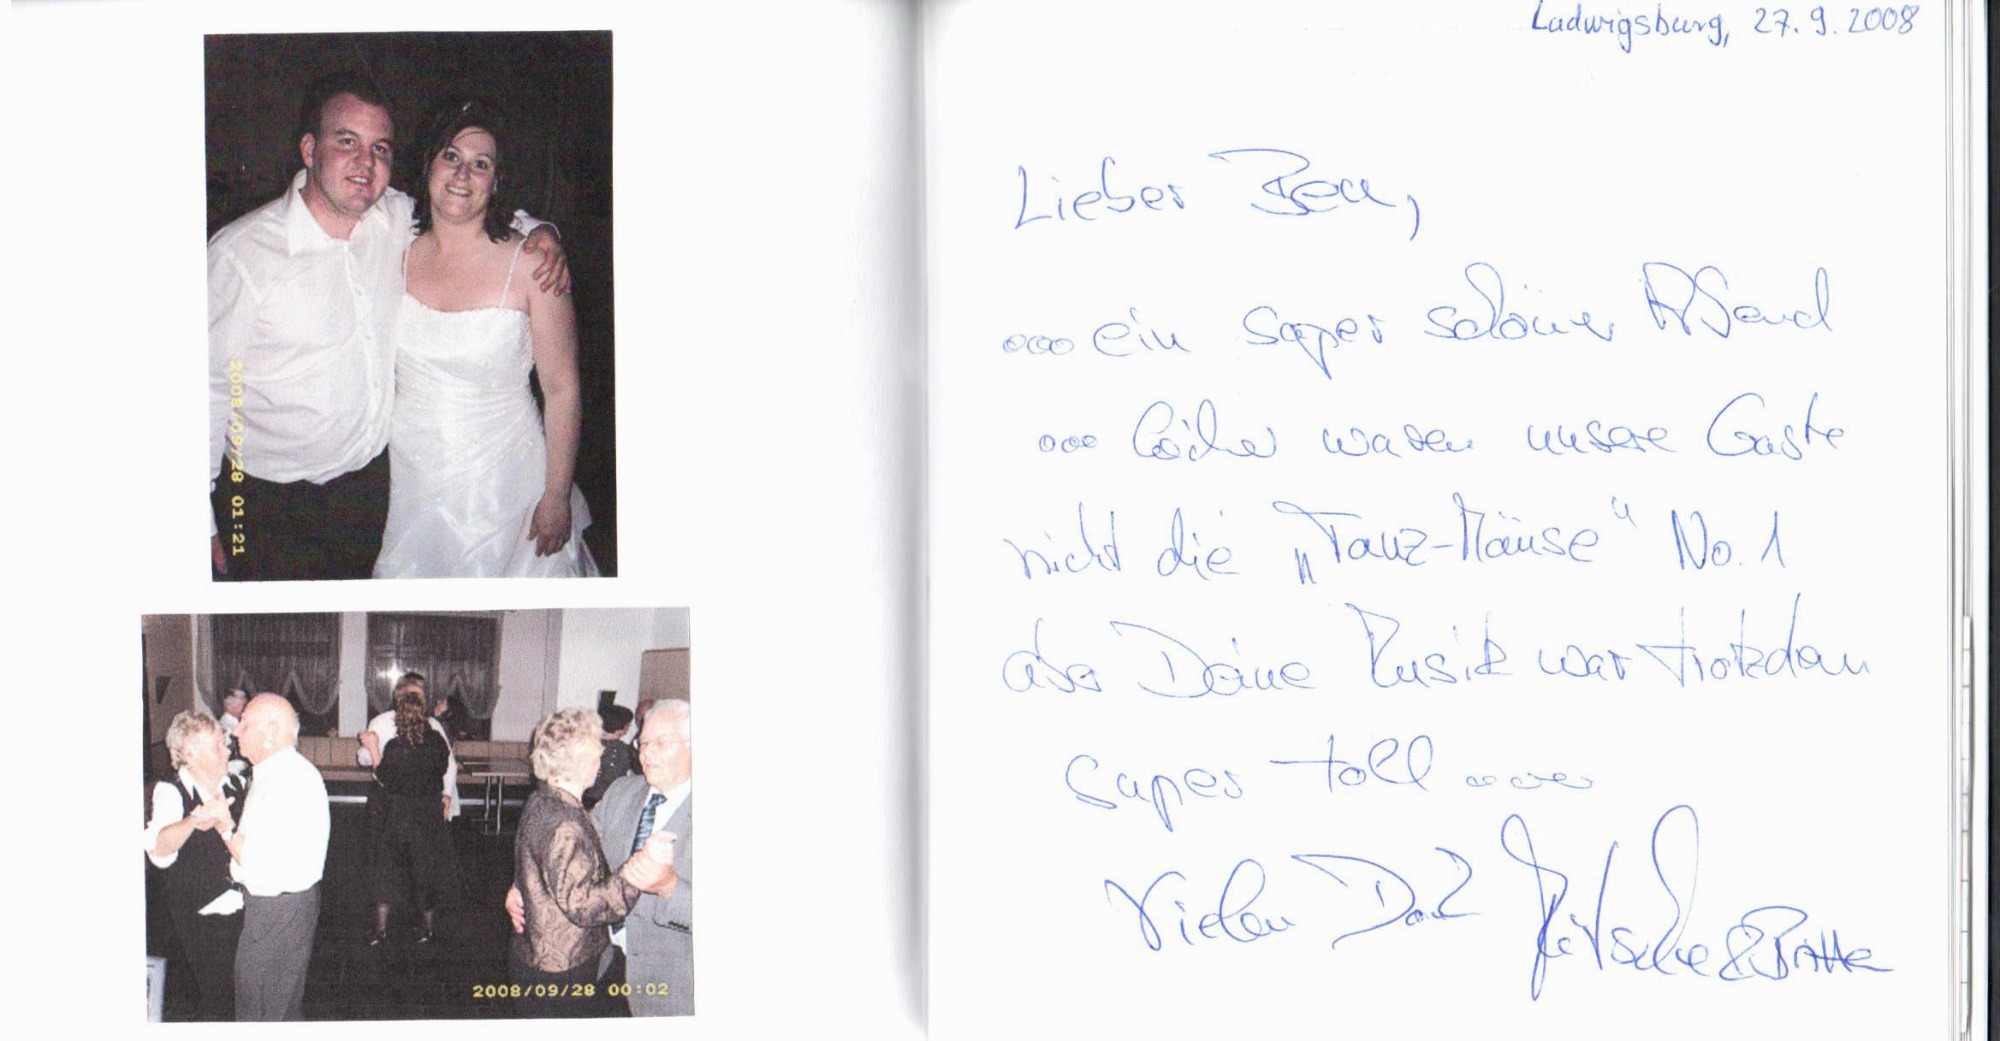 2008/09/28 01:21
2008/09/28 00:02
Ludwigsburg, 27.9.2008
Lieber Ben,
... ein super schöner Abend
... leider waren unsere Gäste
nicht die „Tanz-Mäuse“ No. 1
aber Deine Musik war trotzdem
super toll ...
Vielen Dank & Britta